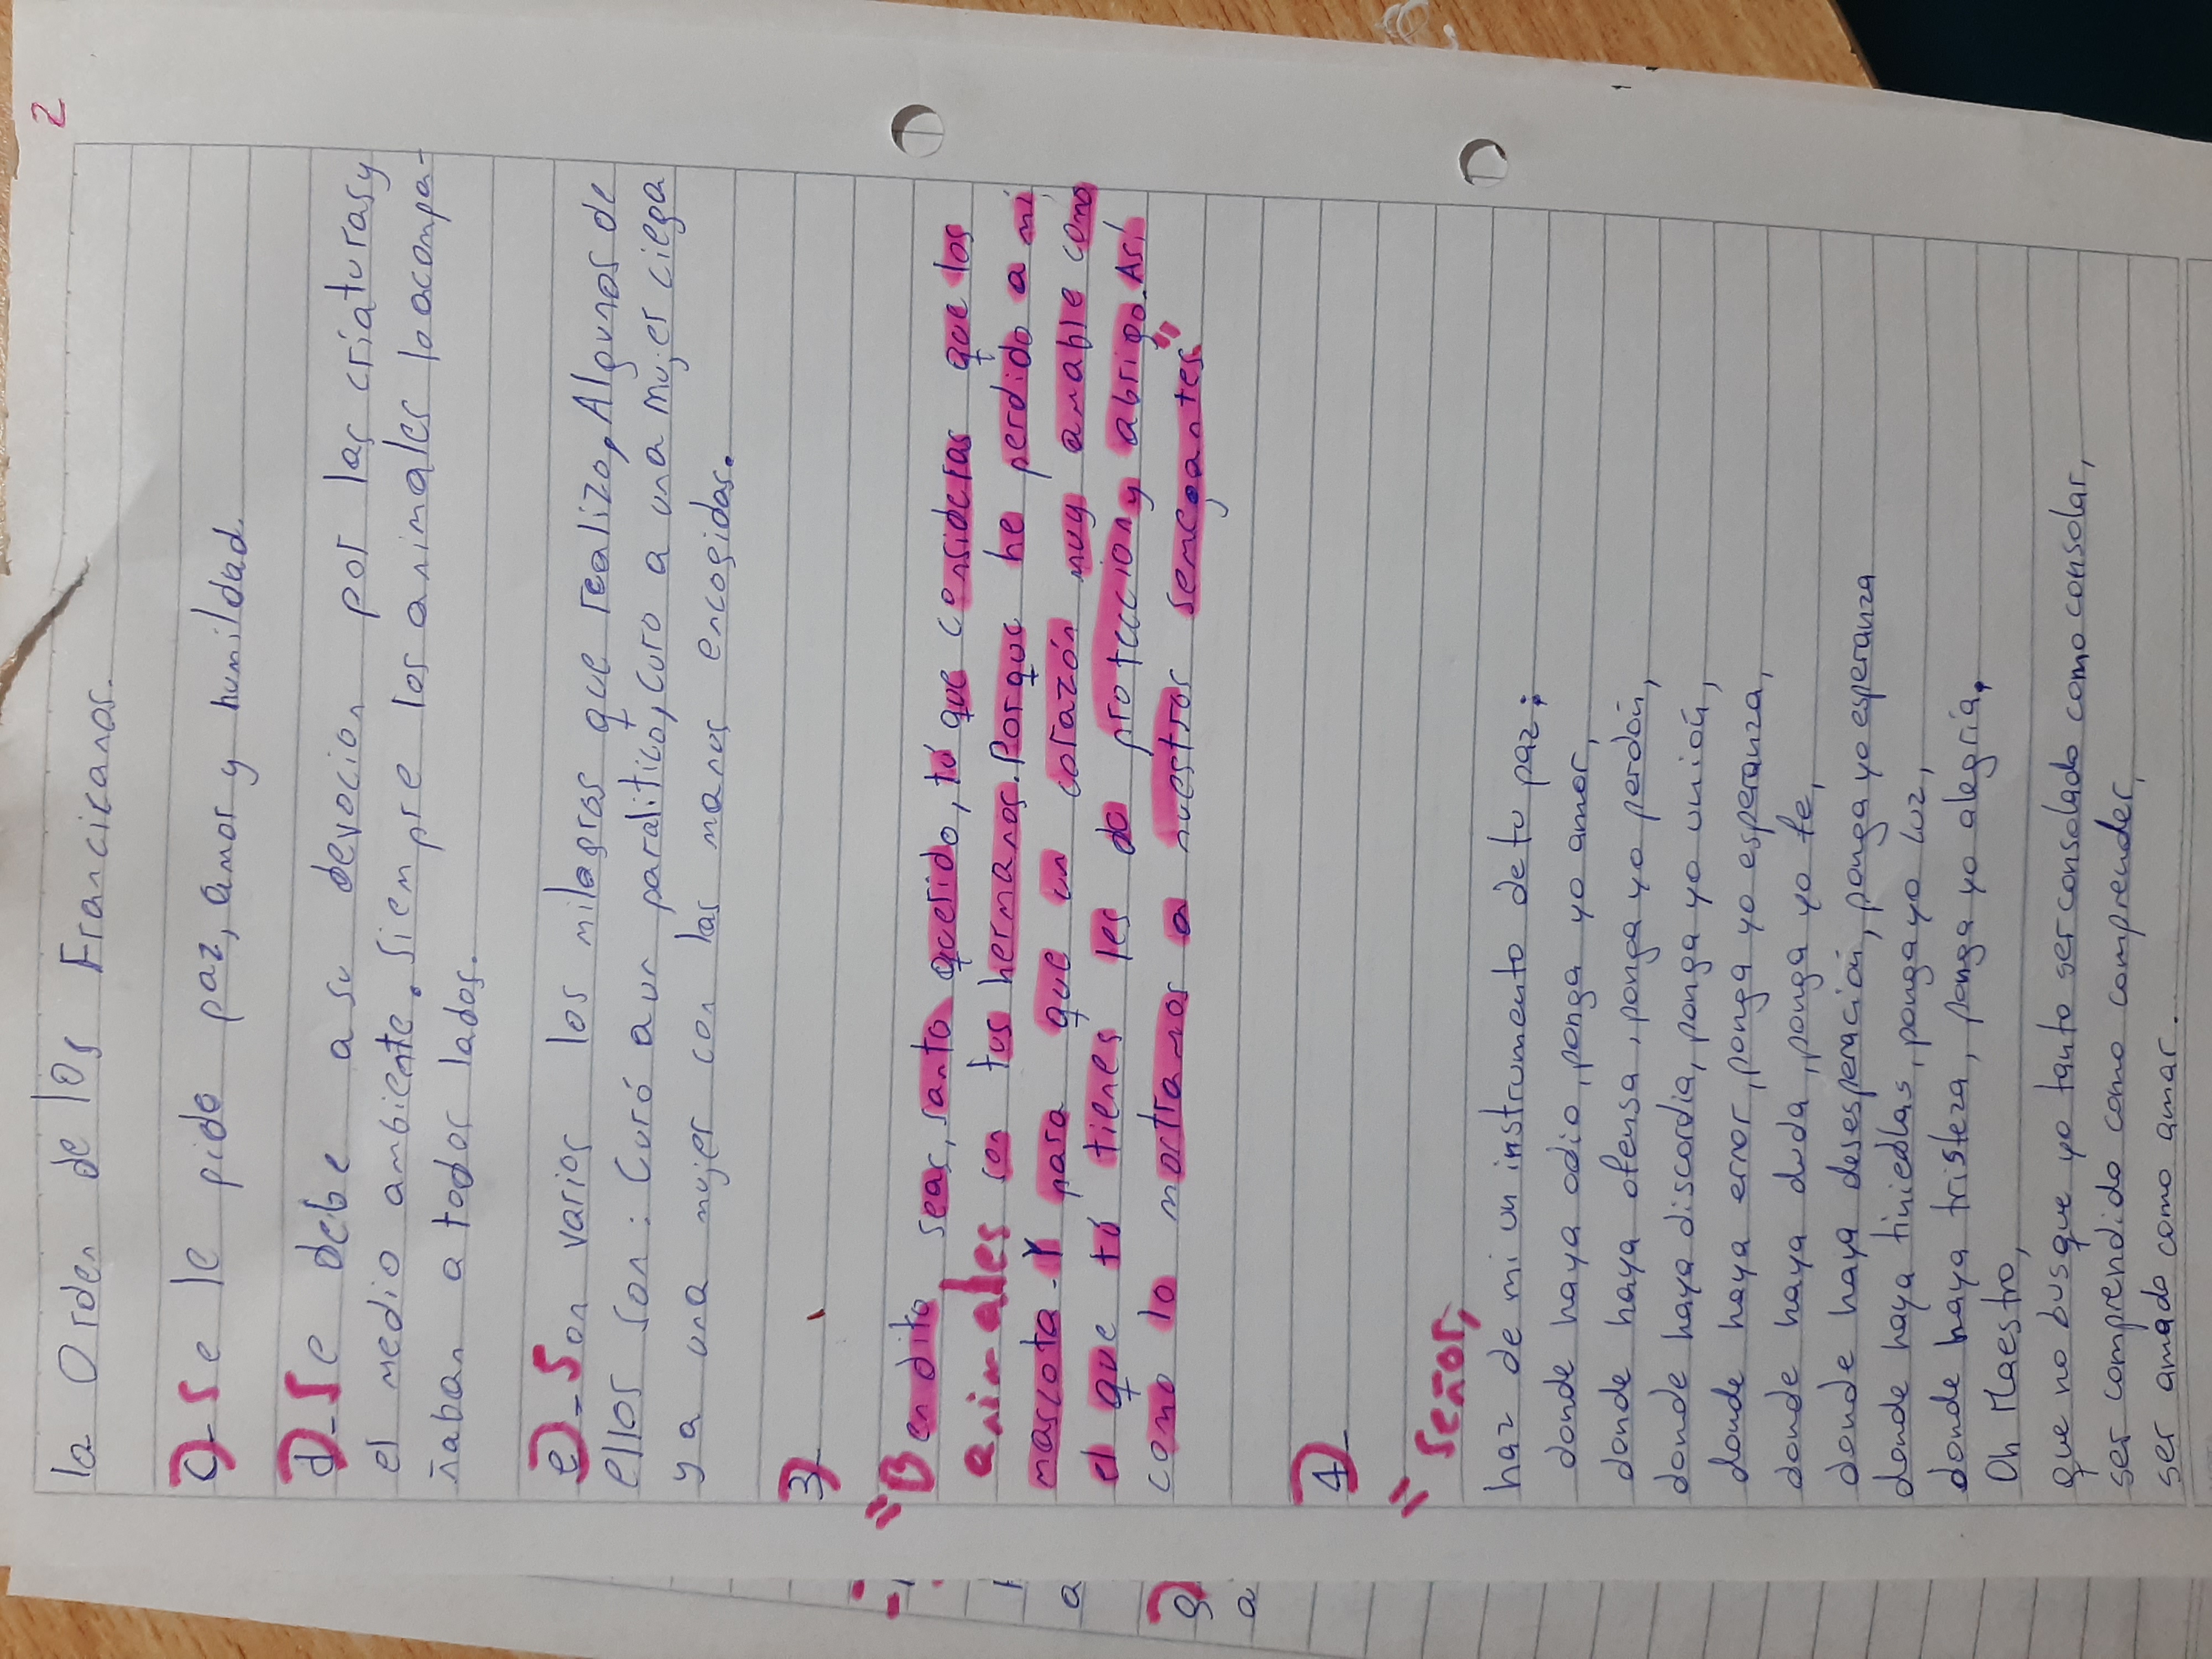 2
la Orden de los Francicanos.
c)-Se le pide paz, amor y humildad
d)-Se debe a su devocion por las criaturas y
el medio ambiente. Siempre los animales loacompa-
ñaban a todos lados.
e)-Son varios los milagros que realizo, Algunos de
ellos son: Curó a un paralitico, Curo a una mujer ciega
y a una mujer con las manos encogidas.
3)-
"Bendito seas, santo querido, tú que consideras que los
animales son tus hermanos. Porque he perdido a mi
mascota. Y para que un corazón muy amable como
el que tú tienes les do proteccion y abrigo. Así
como lo mortramos a nuestros semegantes."
4)-
" Señor,
haz de mi un instrumento de tu paz:
donde haya odio, ponga yo amor,
donde haya ofensa, ponga yo perdón,
donde haya discordia, ponga yo unión,
donde haya error, ponga yo esperanza,
donde haya duda, ponga yo fe,
donde haya desesperación, ponga yo esperanza
donde haya tinieblas, ponga yo luz,
donde haya tristeza, ponga yo alegría.
Oh Maestro,
que no busque yo tanto ser consolado como consolar,
ser comprendido como comprender,
ser amado como amar.
a
g)
a